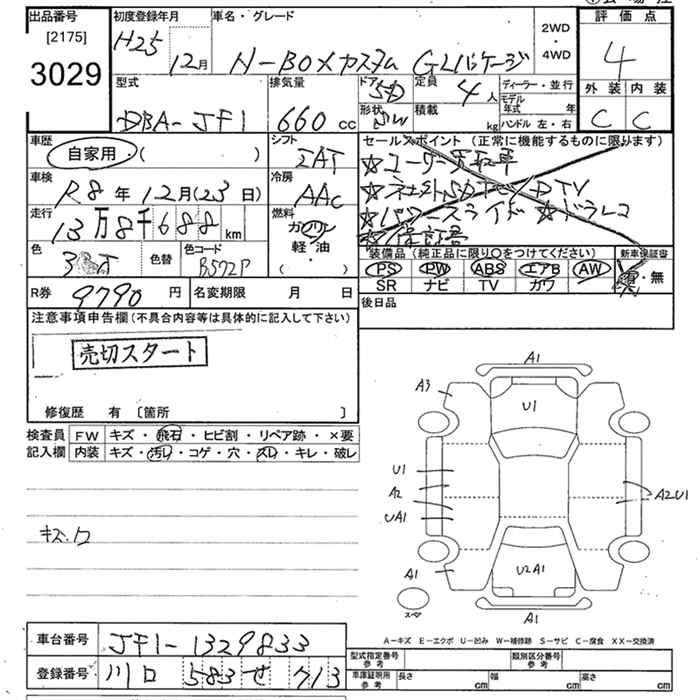 出品番号
[2175]
3029
初度登録年月
H25
12月
車名・グレード
N-BOXカスタム GLパッケージ
2WD
・
4WD
評価点
4
外装 内装
C C
型式
DBA-JF1
排気量
660 cc
ドア
5D
形状
SW
定員
4人
積載
kg
ディーラー・並行
モデル年式 年
ハンドル 左・右
車歴
自家用・( )
シフト
IAT
セールスポイント (正常に機能するものに限ります)
車検
R8年12月(23日)
冷房
AAC
走行
13万8千688km
燃料
ガソリン
軽・油
( )
色
色替
色コード
B572P
装備品 (純正品に限り○をつけてください)
PS PW ABS エアB AW
SR ナビ TV カワ
新車保証書
有・無
R券 9790円
名変期限 月 日
後日品
注意事項申告欄(不具合内容等は具体的に記入して下さい)
売切スタート
修復歴 有〔箇所 〕
検査員 FW キズ・飛石・ヒビ割・リペア跡・×要
記入欄 内装 キズ・汚レ・コゲ・穴・スレ・キレ・破レ
キズ.ワ
A1
A3
U1
U1
A2
UA1
A2U1
A1
U2A1
スペア
A1
A-キズ E-エクボ U-凹み W-補修跡 S-サビ C-腐食 XX-交換済
車台番号 JF1-1329833
登録番号 川口 583 せ 713
型式指定番号
参考
類別区分番号
参考
車庫証明用
参考
長さ cm
幅 cm
高さ cm